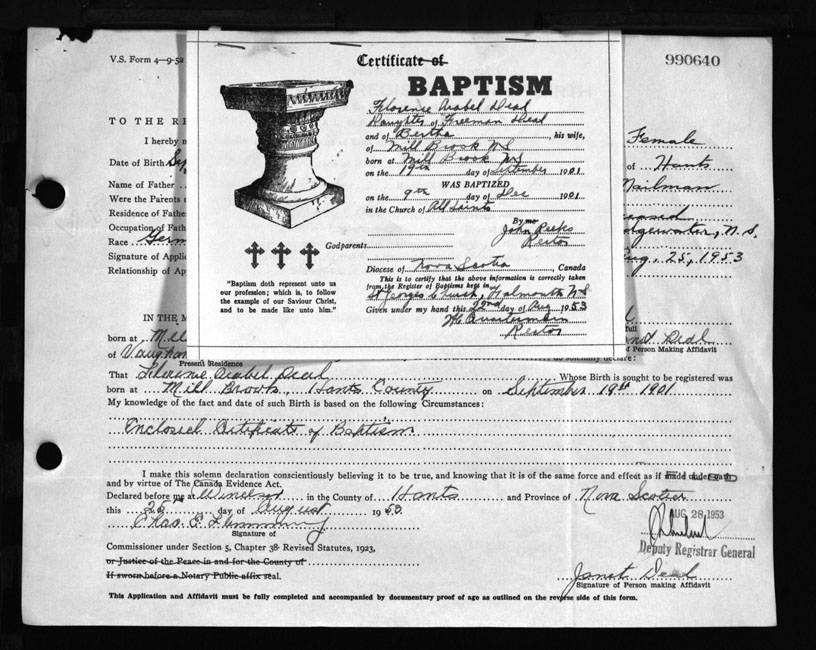 V.S. Form 4—9-52
990640
Certificate of
BAPTISM
Florence Arabel Deal
Daughter of Freeman Deal
and of Bertha, his wife,
of Mill Brook NS
born at Mill Brook NS
on the 19th day of September 1901
WAS BAPTIZED
on the 9th day of Dec 1901
in the Church of All Saints
By me
John Reeks
Rector
Godparents:
Diocese of Nova Scotia Canada
This is to certify that the above information is correctly taken
from the Register of Baptisms kept in
St Georges Church, Falmouth NS
Given under my hand this 22nd day of Aug 1953
Rector
"Baptism doth represent unto us
our profession; which is, to follow
the example of our Saviour Christ,
and to be made like unto him."
TO THE RE
I hereby m
Female
Date of Birth Sep
of Hants
Name of Father
Nailman
Were the Parents
Residence of Fathe
Occupation of Fath
Race Germ
Signature of Applic
Aug, 25, 1953
Relationship of Ap
IN THE M
born at Mil
of Person Making Affidavit
of Vaughan
Present Residence
do solemnly declare:
That Florence Arabel Deal Whose Birth is sought to be registered was
born at Mill Brook, Hants County on September 19th 1901
My knowledge of the fact and date of such Birth is based on the following Circumstances:
Enclosed Certificate of Baptism
I make this solemn declaration conscientiously believing it to be true, and knowing that it is of the same force and effect as if made under oath
and by virtue of The Canada Evidence Act.
Declared before me at Windsor in the County of Hants and Province of Nova Scotia
this 25 day of August 19
AUG 28 1953
Chas. E.
Signature of
Deputy Registrar General
Commissioner under Section 5, Chapter 38 Revised Statutes, 1923,
or Justice of the Peace in and for the County of
If sworn before a Notary Public affix seal.
Janet Deal
Signature of Person making Affidavit
This Application and Affidavit must be fully completed and accompanied by documentary proof of age as outlined on the reverse side of this form.